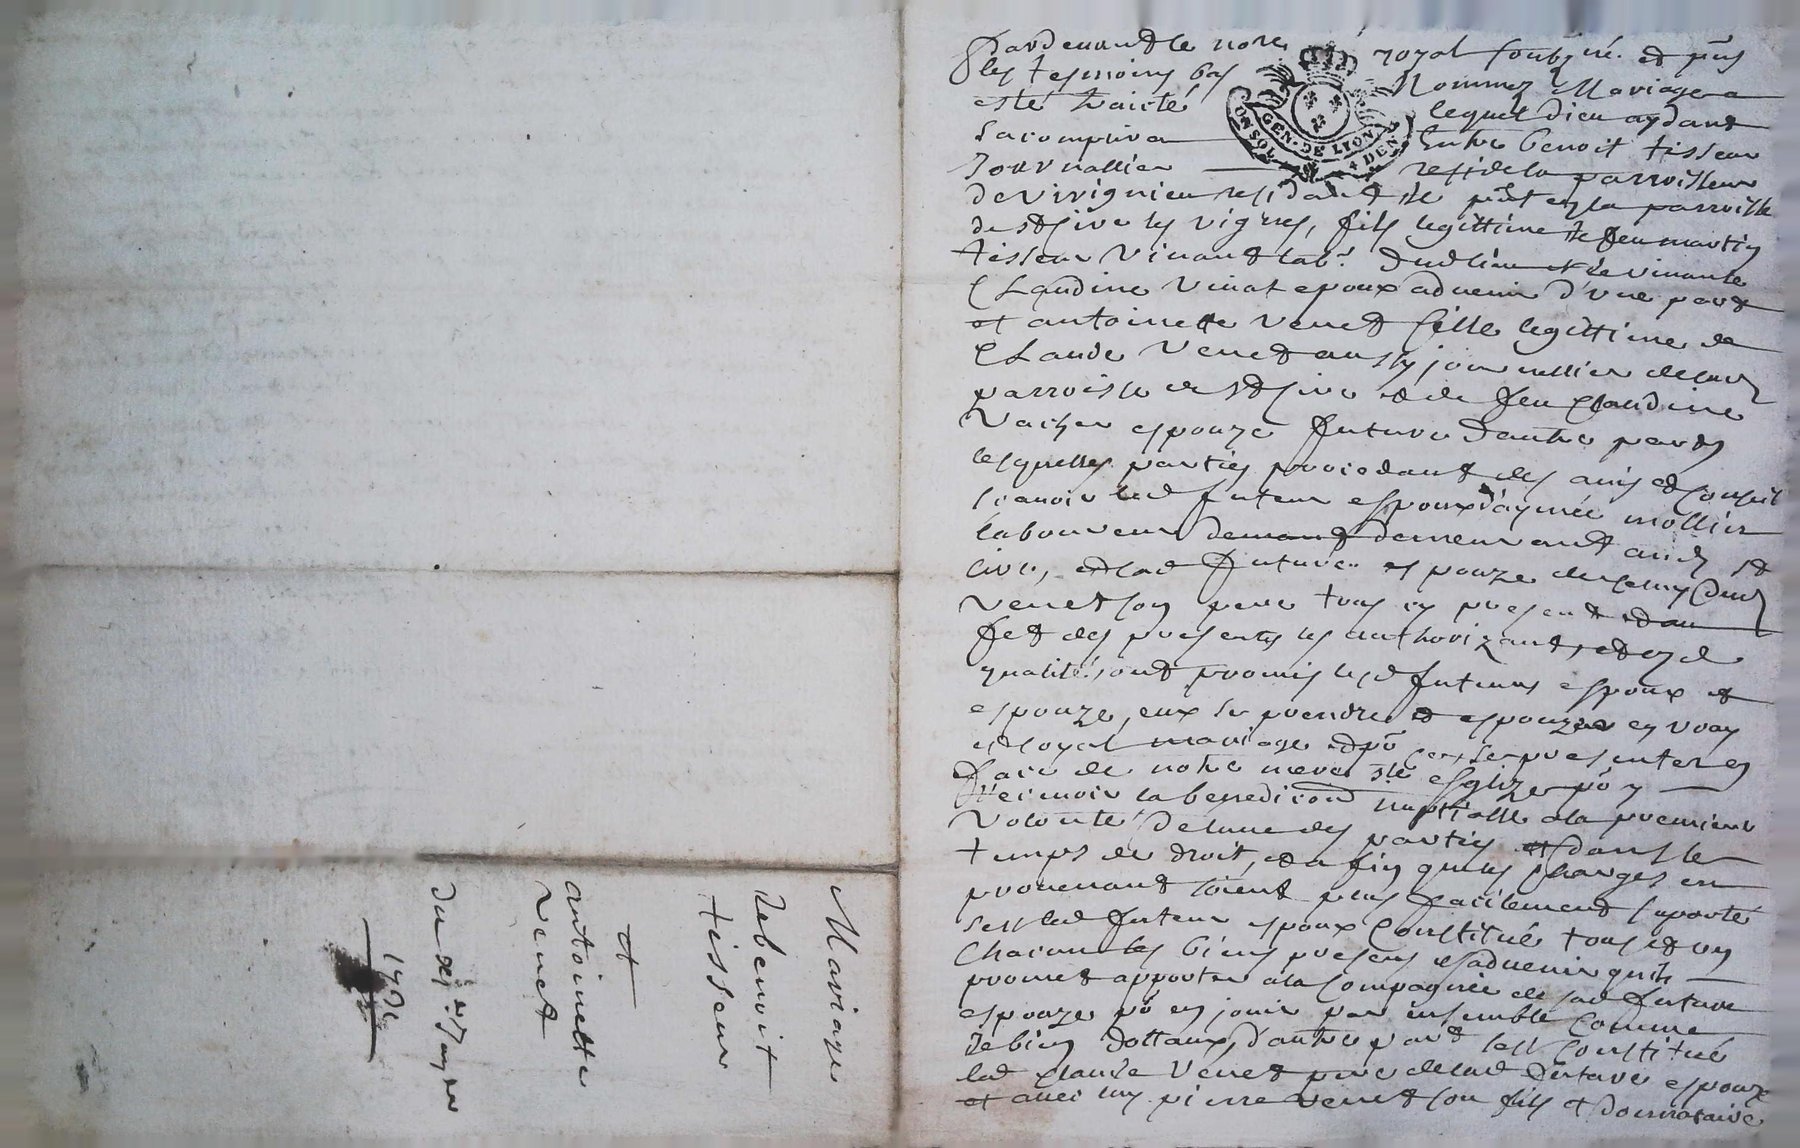 Pardevant le nore royal soubzné. et pns
les tesmoins bas nommez Mariage a
esté traicté lequel dieu aydant
sacomplira Entre benoit tisseur
Journallier
GEN. DE LION
de virignieu residant de pnt en la parroisse
de st sire les vignes, fils legittime de feu martin
tisseur vivant lab.r dud lieu et de vivante
Claudine vinat epoux advenir d'une part
et antoinette venet fille legittime de
Claude venet aussy journallier de lad
parroisse de st sire et de feu Claudine
vacher espouze future d'autre part
lesquelles parties procedant des avis et conseil
scavoir led futeur espoux d'aymée mollin
laboureur demeurant aud st
sire, et lad future espouze de celuy dud
venet son pere tous icy presents et au
fet des presentes les authorizant, et en
qualité, ont promis lesd futeurs espoux et
espouze, eux se prendre et espouzer en vray
et loyal mariage et po cer se presenter en
face de notre mere ste esglize po y
recevoir la benediction nuptialle a la premiere
volonté de l'une des parties et dans le
temps de droit, et afin que les charges en
provenant soient plus facilement suporté
sest led futeur espoux Constitué tous et un
chacun ses biens presens et advenir quil
promet apporter a la compagnie de sad future
espouze po en jouir par ensemble comme
de bien dottaux, d'autre part sest constitué
led Claude venet pere de lad future espouze
et avec luy pierre venet son fils et donnataire
Mariage
de benoit
tisseur
et
antoinette
venet